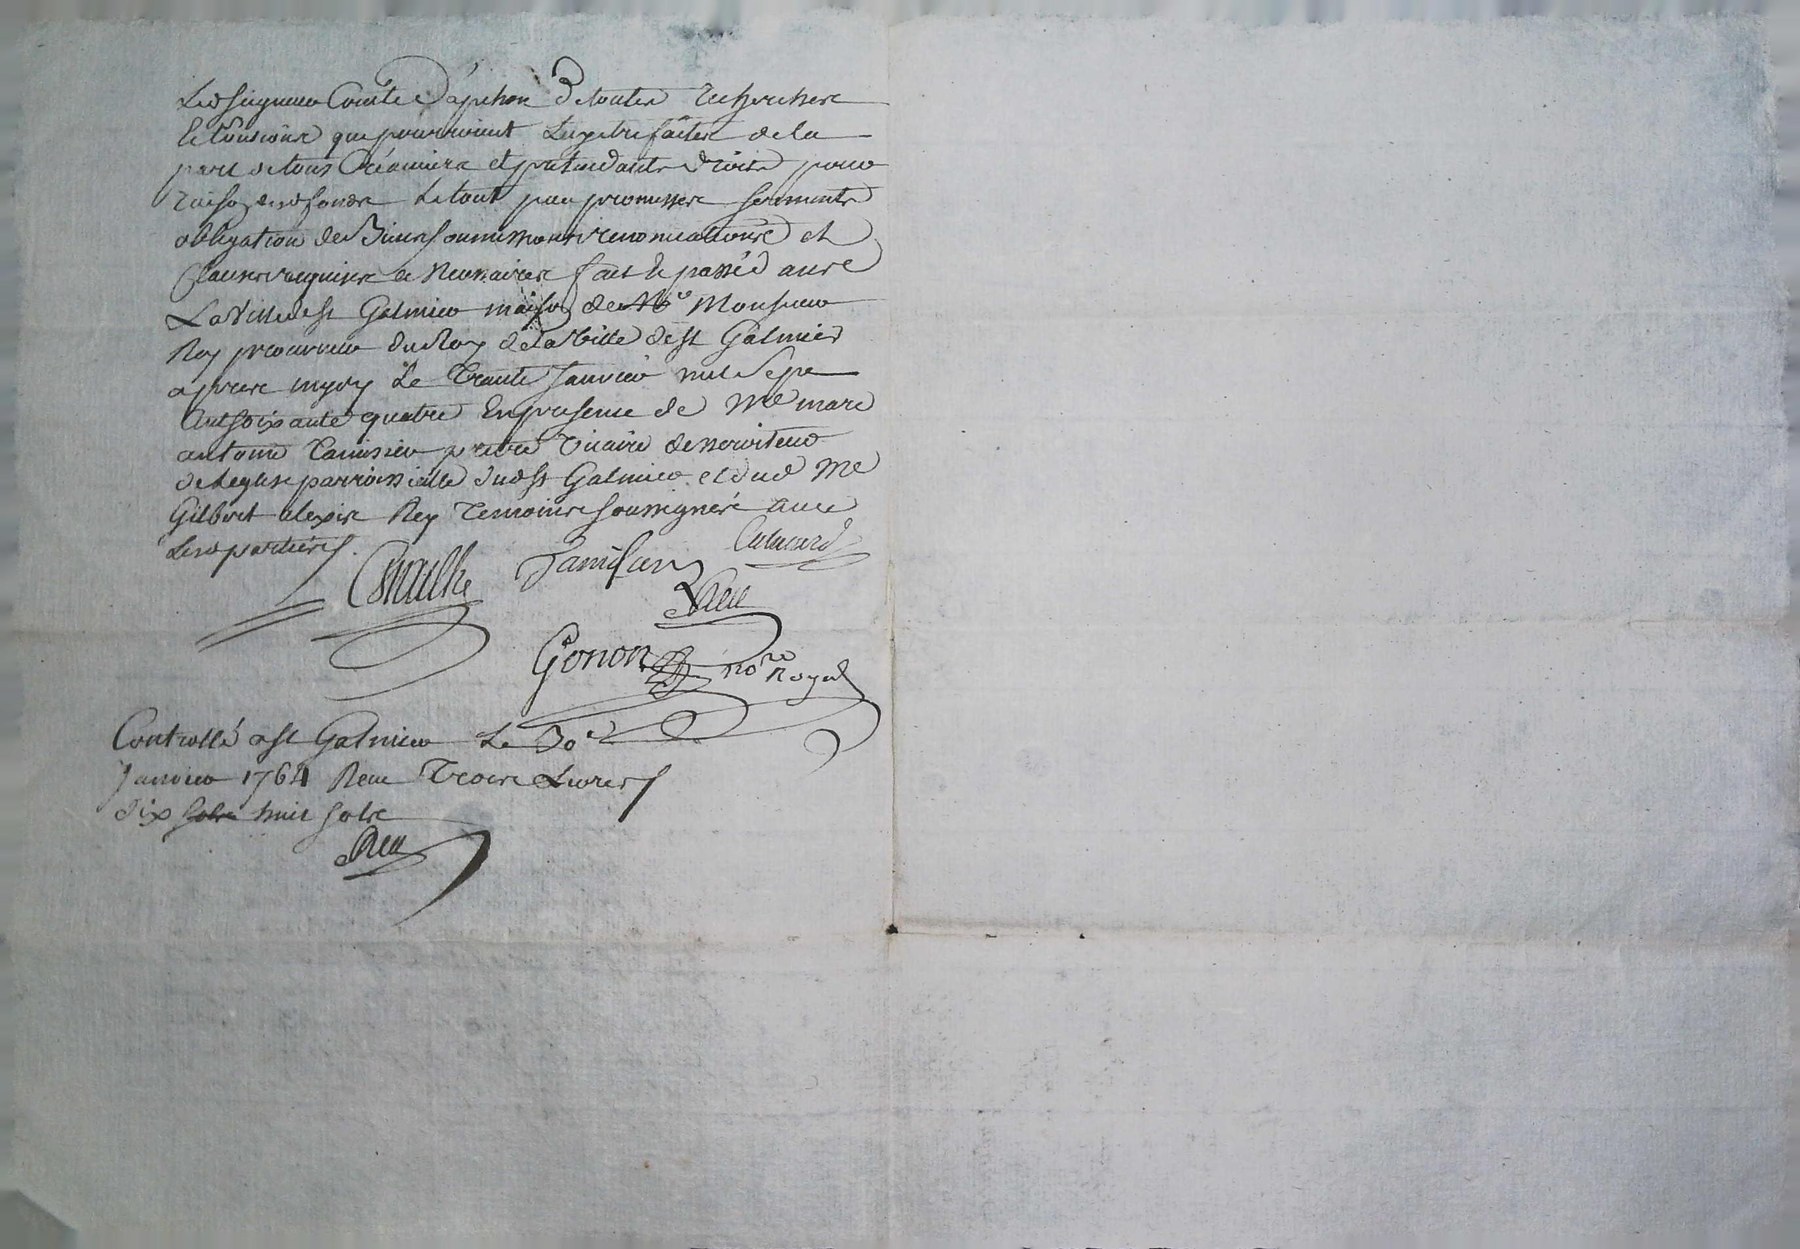 Led seigneur Comte D'apchon de toutes recherches
et évictions que pourroient luy etre faites de la
part de tous Créanciers et pretendants Droits pour
raison desd fonds Le tout par promesses serments
obligation de Biens soumissions renonciations et
Clauses requises et Necessaires fait et passé aud
La Ville de st Galmier maison de Me Monsieur
Rey procureur du Roy de la Ville de st Galmier
apres mydy Le Trente Janvier mil Sept
Cent soixante quatre En presence de Me marc
antoine Tamisier pretre Vicaire de
de Leglise parroissialle dud st Galmier et dud Me
Gilbert alexis Rey Temoins soussignés avec
Lesd parties.
Chaulke Tamisier
Rey
Gonon nore Royal
Controllé a st Galmier Le 30e
Janvier 1764 Reçu Trois Livres
dix sols huit sols
Rey